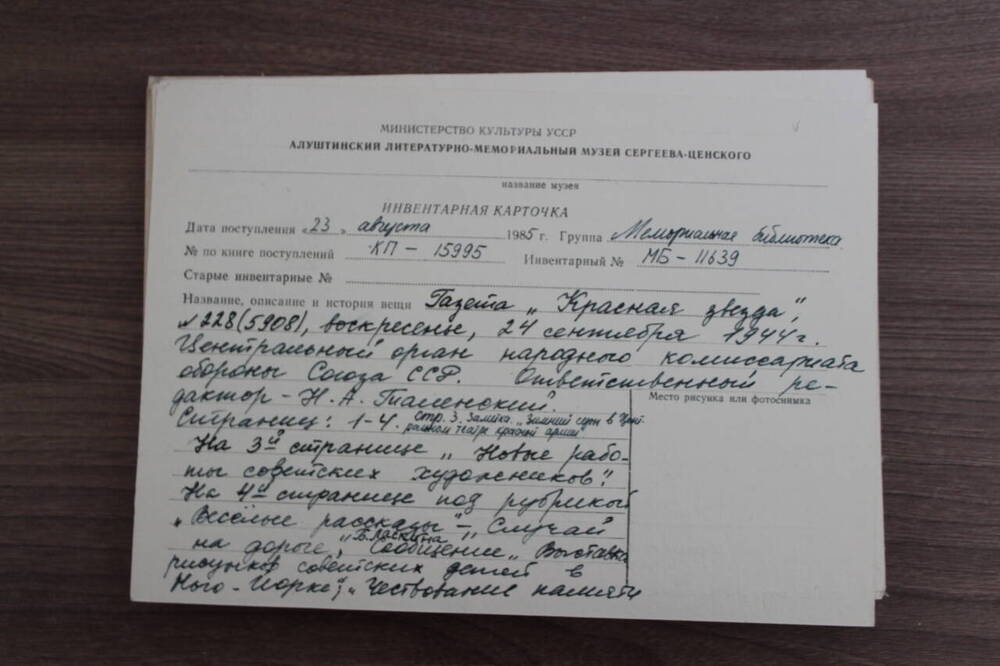 МИНИСТЕРСТВО КУЛЬТУРЫ УССР
АЛУШТИНСКИЙ ЛИТЕРАТУРНО-МЕМОРИАЛЬНЫЙ МУЗЕЙ СЕРГЕЕВА-ЦЕНСКОГО
название музея
ИНВЕНТАРНАЯ КАРТОЧКА
Дата поступления «23» августа 1985 г. Группа Мемориальная библиотека
№ по книге поступлений КП - 15995 Инвентарный № МБ - 11639
Старые инвентарные №
Название, описание и история вещи Газета „Красная звезда",
№ 228 (5908), воскресенье, 24 сентября 1944 г.
Центральный орган народного комиссариата
обороны Союза ССР. Ответственный ре-
дактор - Н. А. Таленский.
Место рисунка или фотоснимка
Страниц: 1-4. стр. 3. Заметка „Зимний сезон в Цент-
ральном театре красной армии"
На 3й странице „Новые рабо-
ты советских художников".
На 4й странице под рубрикой
„Весёлые рассказы" - „Случай
на дороге" Б. Ласкина, Сообщение „Выставка
рисунков советских детей в
Нью-Йорке"; „Чествование памяти